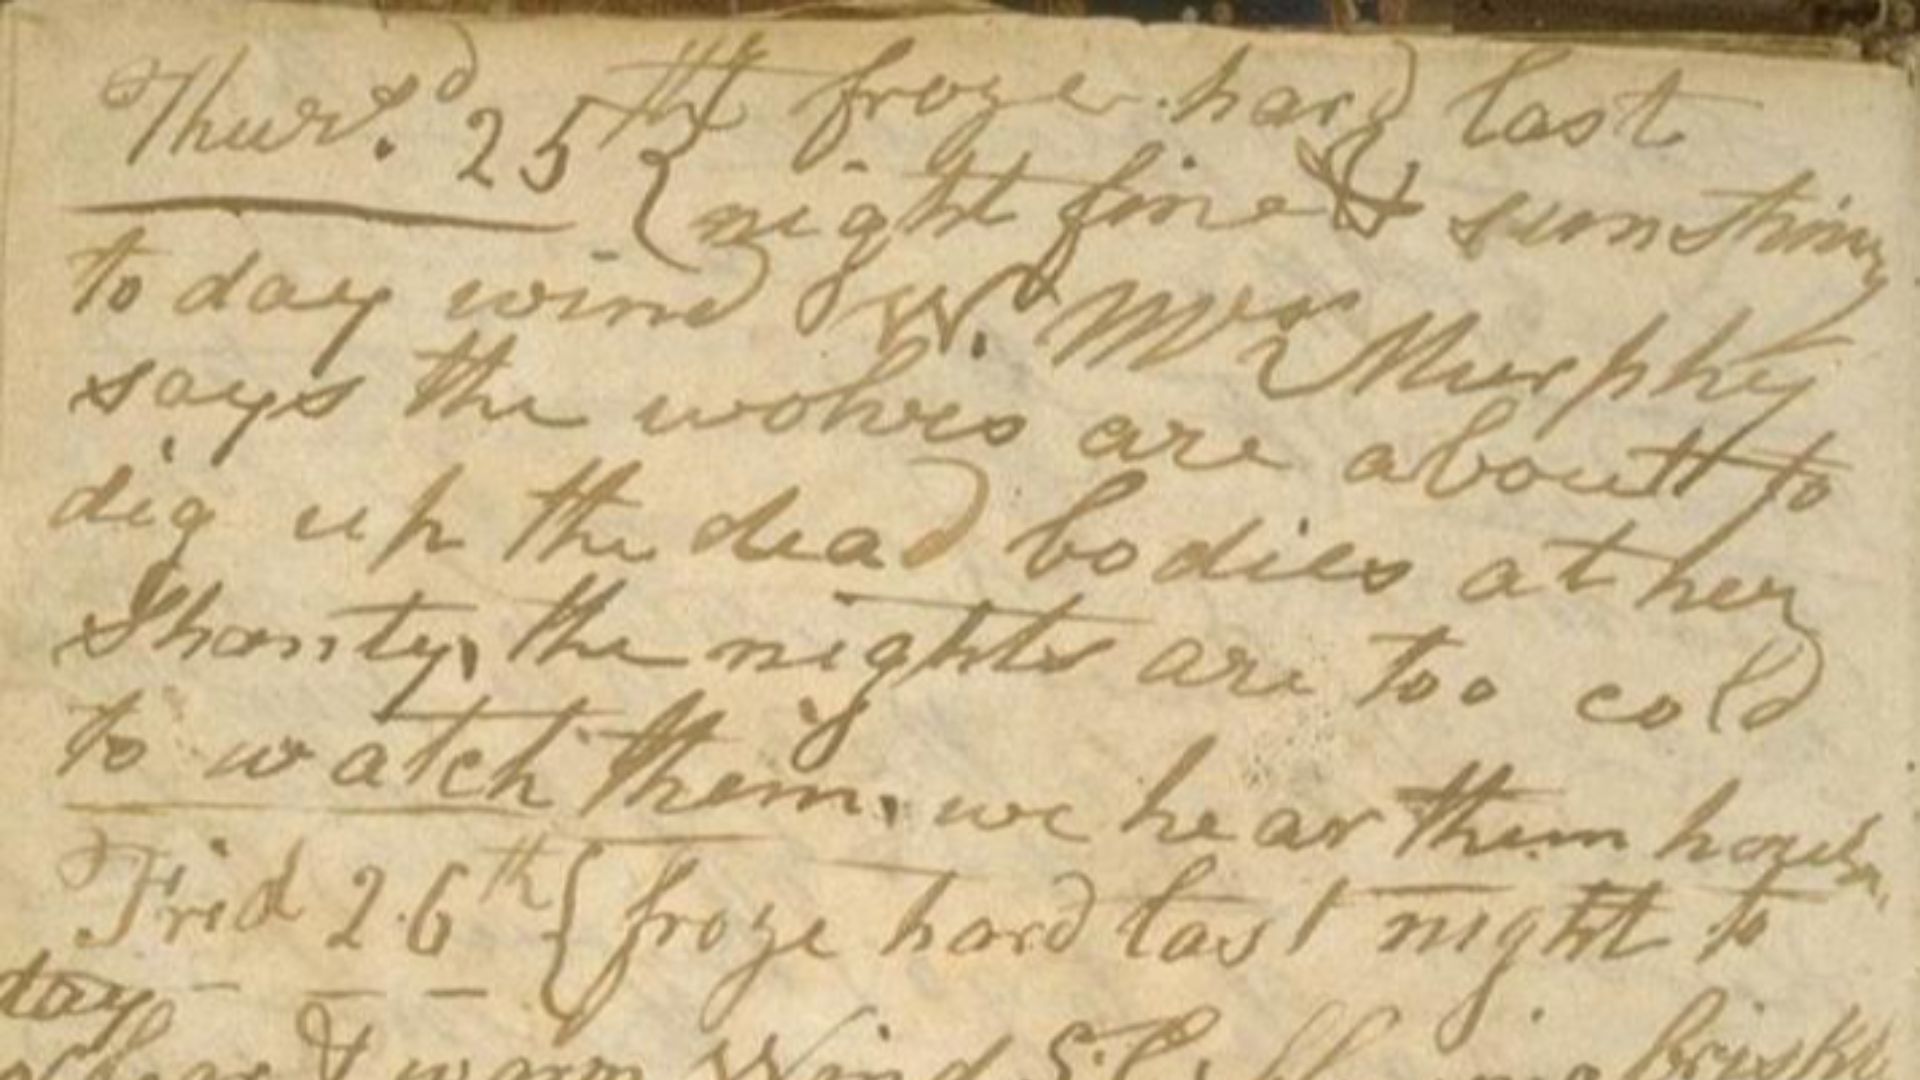 Thursd. 25th froze hard last
night fine & sunshiny
to day wind W. Mrs Murphy
says the wolves are about to
dig up the dead bodies at her
Shanty, the nights are too cold
to watch them, we hear them howl
Frid 26th froze hard last night to
day
clear & warm Wind S.E. blowing briskly